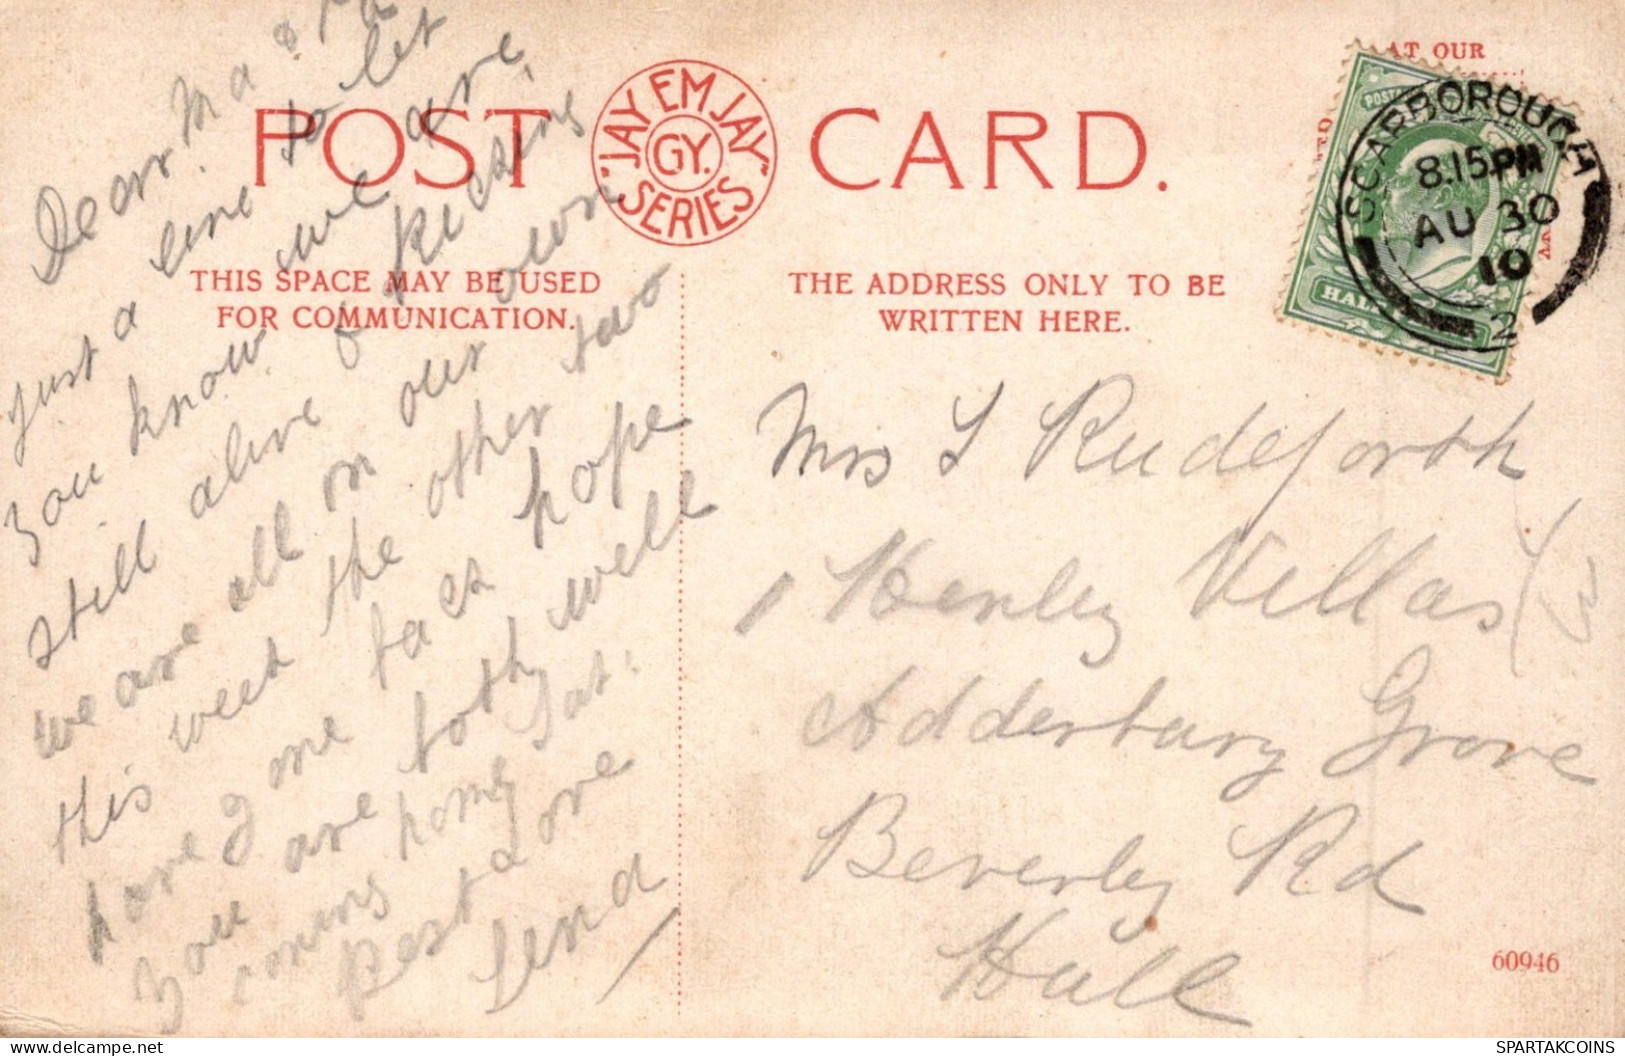 AT OUR
POST CARD.
"JAY EM JAY"
GY.
SERIES
THIS SPACE MAY BE USED
FOR COMMUNICATION.
THE ADDRESS ONLY TO BE
WRITTEN HERE.
SCARBOROUGH
8.15PM
AU 30
10
2
Dear Ma & Pa
Just a line to let
you know we are
still alive & kicking
we are all on our own
this week the other two
have gone back hope
you are both well
coming home Sat.
Best Love
Lena
Mrs S Rudeforth
1 Henley Villas
Adderbury Grove
Beverley Rd
Hull
60946
www.delcampe.net
SPARTAKCOINS